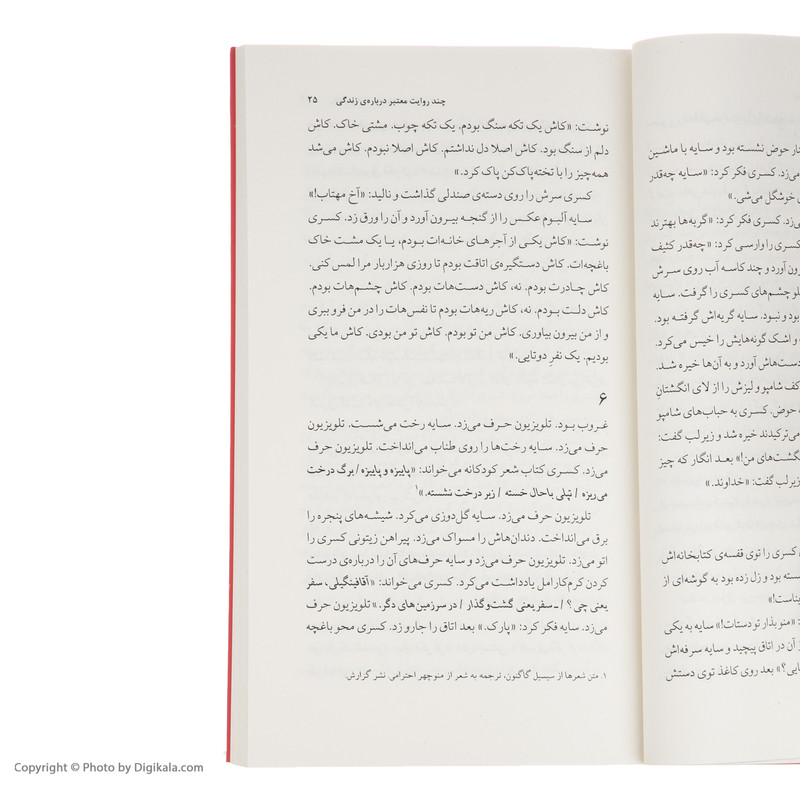 چند روایت معتبر درباره‌ی زندگی ۲۵
نوشت: «کاش یک تکه سنگ بودم. یک تکه چوب. مشتی خاک. کاش
دلم از سنگ بود. کاش اصلا دل نداشتم. کاش اصلا نبودم. کاش می‌شد
همه‌چیز را با تخته‌پاک‌کن پاک کرد.»
کسری سرش را روی دسته‌ی صندلی گذاشت و نالید: «آخ مهتاب!»
سایه آلبوم عکس را از گنجه بیرون آورد و آن را ورق زد. کسری
نوشت: «کاش یکی از آجرهای خانه‌ات بودم، یا یک مشت خاک
باغچه‌ات. کاش دستگیره‌ی اتاقت بودم تا روزی هزاربار مرا لمس کنی.
کاش چادرت بودم. نه، کاش دست‌هات بودم. کاش چشم‌هات بودم.
کاش دلت بودم. نه، کاش ریه‌هات بودم تا نفس‌هات را در من فرو ببری
و از من بیرون بیاوری. کاش من تو بودم. کاش تو من بودی. کاش ما یکی
بودیم. یک نفرِ دوتایی.»
۶
غروب بود. تلویزیون حرف می‌زد. سایه رخت می‌شست. تلویزیون
حرف می‌زد. سایه رخت‌ها را روی طناب می‌انداخت. تلویزیون حرف
می‌زد. کسری کتاب شعر کودکانه می‌خواند: «پاییزه و پاییزه / برگ درخت
می‌ریزه / تپلی باحال خسته / زیر درخت نشسته.»۱
تلویزیون حرف می‌زد. سایه گل‌دوزی می‌کرد. شیشه‌های پنجره را
برق می‌انداخت. دندان‌هاش را مسواک می‌زد. پیراهن زیتونی کسری را
اتو می‌زد. تلویزیون حرف می‌زد و سایه حرف‌های آن را درباره‌ی درست
کردن کرم‌کارامل یادداشت می‌کرد. کسری می‌خواند: «آقافینگیلی، سفر
یعنی چی؟ / ـ سفر یعنی گشت‌و‌گذار / در سرزمین‌های دگر.» تلویزیون حرف
می‌زد. سایه فکر کرد: «پارک.» بعد اتاق را جارو زد. کسری محو باغچه
۱. متن شعرها از سیسیل گاگنون، ترجمه به شعر از منوچهر احترامی. نشر گزارش.
حوض نشسته بود و سایه با ماشین
می‌زد. کسری فکر کرد: «سایه چه‌قدر
خوشگل می‌شی.»
کسری فکر کرد: «گربه‌ها بهترند
کسری را وارسی کرد: «چه‌قدر کثیف
آورد و چند کاسه آب روی سرش
چشم‌های کسری را گرفت. سایه
بود و نبود. سایه گریه‌اش گرفته بود.
و اشک گونه‌هایش را خیس می‌کرد.
دست‌هاش آورد و به آن‌ها خیره شد.
کف شامپو و لیزش را از لای انگشتانِ
حوض. کسری به حباب‌های شامپو
می‌ترکیدند خیره شد و زیر لب گفت:
من!» بعد انگار که چیز
زیر لب گفت: «خداوند.»
کسری را توی قفسه‌ی کتابخانه‌اش
بود و زل زده بود به گوشه‌ای از
«منو بذار تو دستات!» سایه به یکی
از آن در اتاق پیچید و سایه سرفه‌اش
بعد روی کاغذ توی دستش
Copyright © Photo by Digikala.com